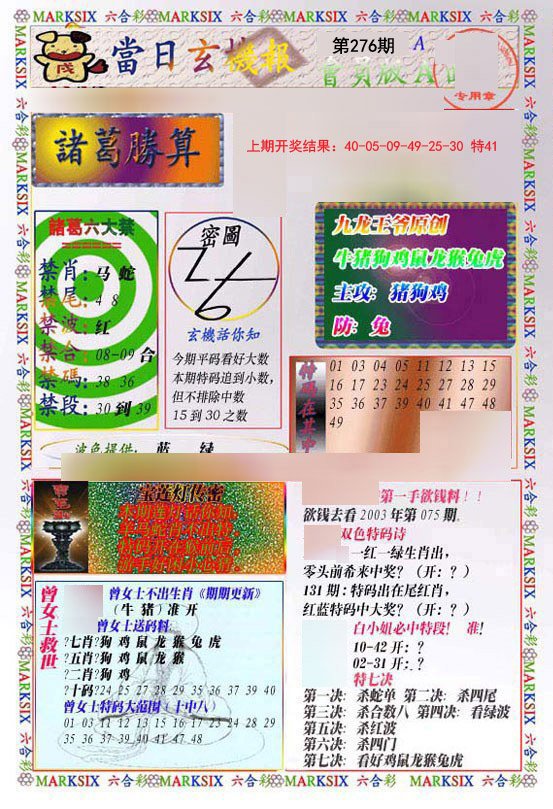 MARKSIX 六合彩 MARKSIX 六合彩 MARKSIX 六合彩 MARKSIX 六合彩
當日玄機報
第276期
A
專用章
諸葛勝算
上期开奖结果：40-05-09-49-25-30 特41
諸葛六大禁
禁肖：马 蛇
禁尾：4 8
禁波：红
禁合：08-09 合
禁碼：38 36
禁段：30 到 39
密圖
玄機話你知
今期平码看好大数
本期特码追到小数,
但不排除中数
15 到 30 之数
九龙王爷原创
牛猪狗鸡鼠龙猴兔虎
主攻：猪狗鸡
防：兔
特码在其中
01 03 04 05 11 12 13 15
16 17 23 24 25 27 28 29
35 36 37 39 40 41 47 48
49
波色提供：蓝 绿
宝莲灯传密
第一手欲钱料！！
欲钱去看 2003 年第 075 期.
双色特码诗
一红一绿生肖出,
零头前希来中奖？（开：？）
131 期：特码出在尾红肖,
红蓝特码中大奖？（开：？）
白小姐必中特段！ 准!
10-42 开：？
02-31 开：？
特七决
第一决：杀蛇单 第二决：杀四尾
第三决：杀合数八 第四决：看绿波
第五决：杀红波
第六决：杀四门
第七决：看好鸡鼠龙猴兔虎
曾女士救世
曾女士不出生肖《期期更新》
（牛 猪）准 开
曾女士送码料：
?七肖?狗 鸡 鼠 龙 猴 兔 虎
?五肖?狗 鸡 鼠 龙 猴
?二肖?狗 鸡
?十码?24 25 27 28 29 35 36 37 39 40
曾女士特码大范围（十中八）
01 03 11 12 13 15 16 17 23 24 28 29
35 36 37 39 40 41 47 48
MARKSIX 六合彩 MARKSIX 六合彩 MARKSIX 六合彩 MARKSIX 六合彩